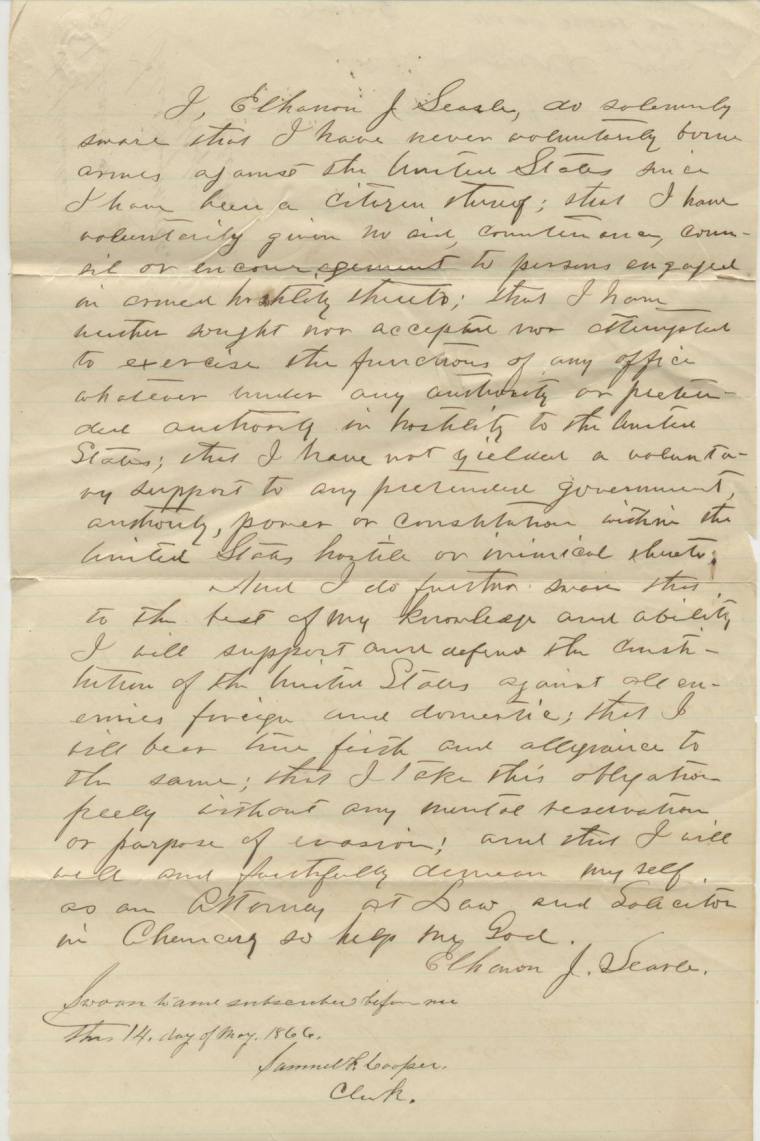 I, Elhanon J. Searle, do solemnly
sware that I have never voluntarily borne
arms against the United States since
I have been a citizen thereof; that I have
voluntarily given no aid, countenance, coun-
sil or encouragement to persons engaged
in armed hostility thereto; that I have
neither sought nor accepted nor attempted
to exercise the functions of any office
whatever under any authority or preten-
ded authority in hostility to the United
States; that I have not yielded a volunta-
ry support to any pretended government,
authority, power or constitution within the
United States hostile or inimical thereto.
And I do further swear that,
to the best of my knowledge and ability
I will support and defend the Consti-
tution of the United States against all en-
emies foreign and domestic; that I
will bear true faith and allegiance to
the same; that I take this obligation
freely without any mental reservation
or purpose of evasion; and that I will
well and faithfully demean myself
as an Attorney at Law and Solicitor
in Chancery so help me God.
Elhanon J. Searle.
Sworn to and subscribed before me
this 14. day of May. 1866.
Samuel Cooper.
Clerk.